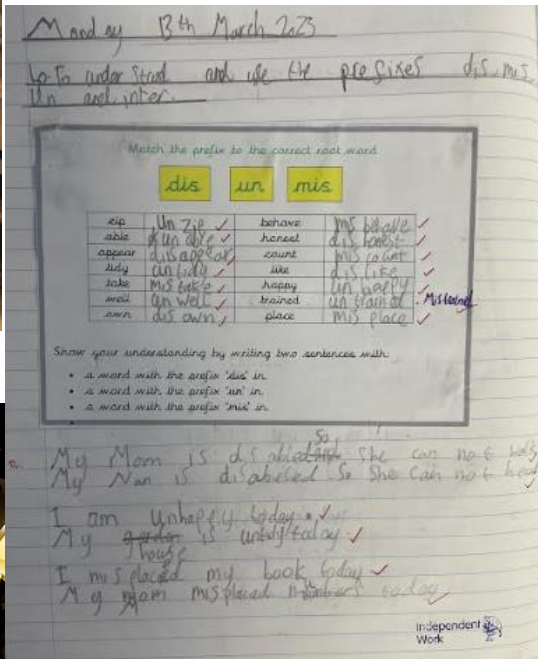 Monday 13th March 2023
Lo-To under stand and use the prefixes dis, mis,
un and inter.
Match the prefix to the correct root word
dis un mis
zip Un zip behave mis behave
able un able honest dis honest
appear dis appear count mis count
tidy un tidy like dis like
take mis take happy un happy
well un well trained un trained
own dis own place mis place
Show your understanding by writing two sentences with:
• a word with the prefix 'dis' in.
• a word with the prefix 'un' in.
• a word with the prefix 'mis' in.
My Mom is disabled so She can not walk
My Nan is disabeled So She Can not
I am unhappy today.
My house is untidy today
I misplaced my book today
My mom misplaced numbers today
Independent
Work